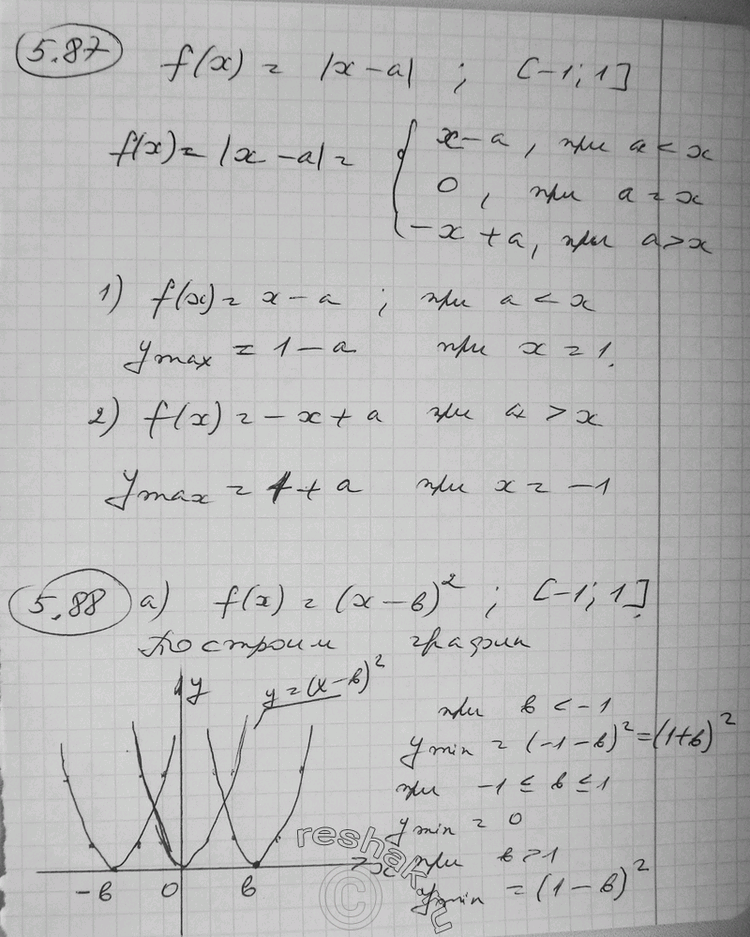 5.87 f(x) = |x-a| ; [-1; 1]
f(x) = |x-a| = { x-a, при a < x
0, при a = x
-x+a, при a > x
1) f(x) = x-a ; при a < x
y max = 1-a при x = 1.
2) f(x) = -x+a при a > x
y max = 1+a при x = -1
5.88 а) f(x) = (x-в)² ; [-1; 1]
Построим график
y y = (x-в)²
при в < -1
y min = (-1-в)² = (1+в)²
при -1 ≤ в ≤ 1
y min = 0
при в > 1
y min = (1-в)²
-в 0 в x
reshak.ru
©